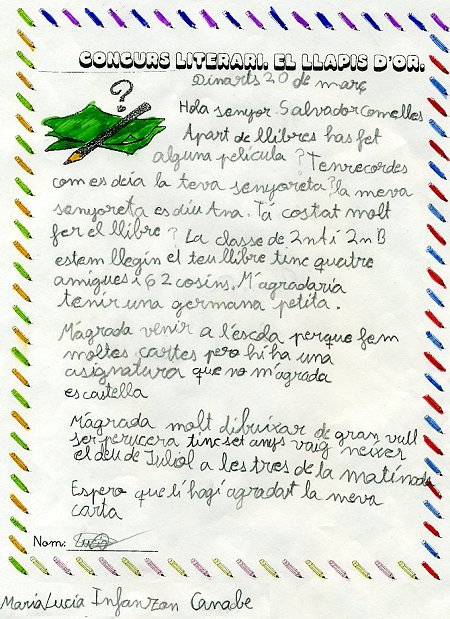 CONCURS LITERARI. EL LLAPIS D'OR.
Dimarts 20 de març
Hola senyor Salvador Comelles
Apart de llibres has fet
alguna película? Tenrecordes
com es deia la teva senyoreta? la meva
senyoreta es diu Ana. Tá costat molt
fer el llibre? La classe de 2nt i 2n B
estem llegin el teu llibre tinc quatre
amigues i 62 cosins. M'agradaria
tenir una germana petita.
M'agrada venir a l'escola perque fem
moltes cartes pero hi ha una
asignatura que no m'agrada
es castella
M'agrada molt dibuixar de gran vull
ser perucera tinc set anys vaig neixer
el deu de Juliol a les tres de la matinada
Espero que li hagi agradat la meva
carta
Nom: Lucia
Maria Lucia Infanzon Canabe